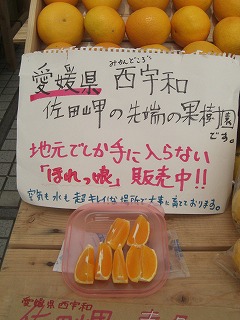 みかんどころ
愛媛県 西宇和
佐田岬の先端の果樹園
です。
地元でしか手に入らない
「はれっ娘」販売中!!
空気も水も超キレイな場所で大事に育てております。
愛媛県 西宇和